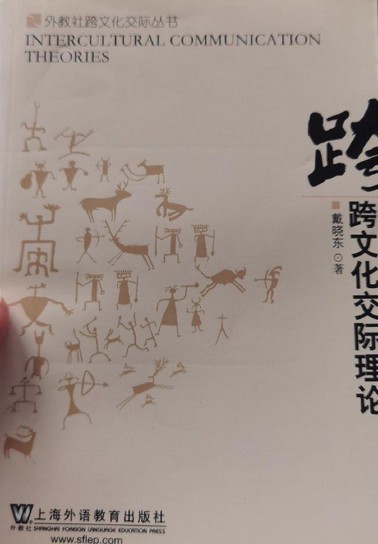 外教社跨文化交际丛书
INTERCULTURAL COMMUNICATION
THEORIES
跨
跨文化交际理论
戴晓东⊙著
W
外教社
上海外语教育出版社
SHANGHAI FOREIGN LANGUAGE EDUCATION PRESS
www.sflep.com